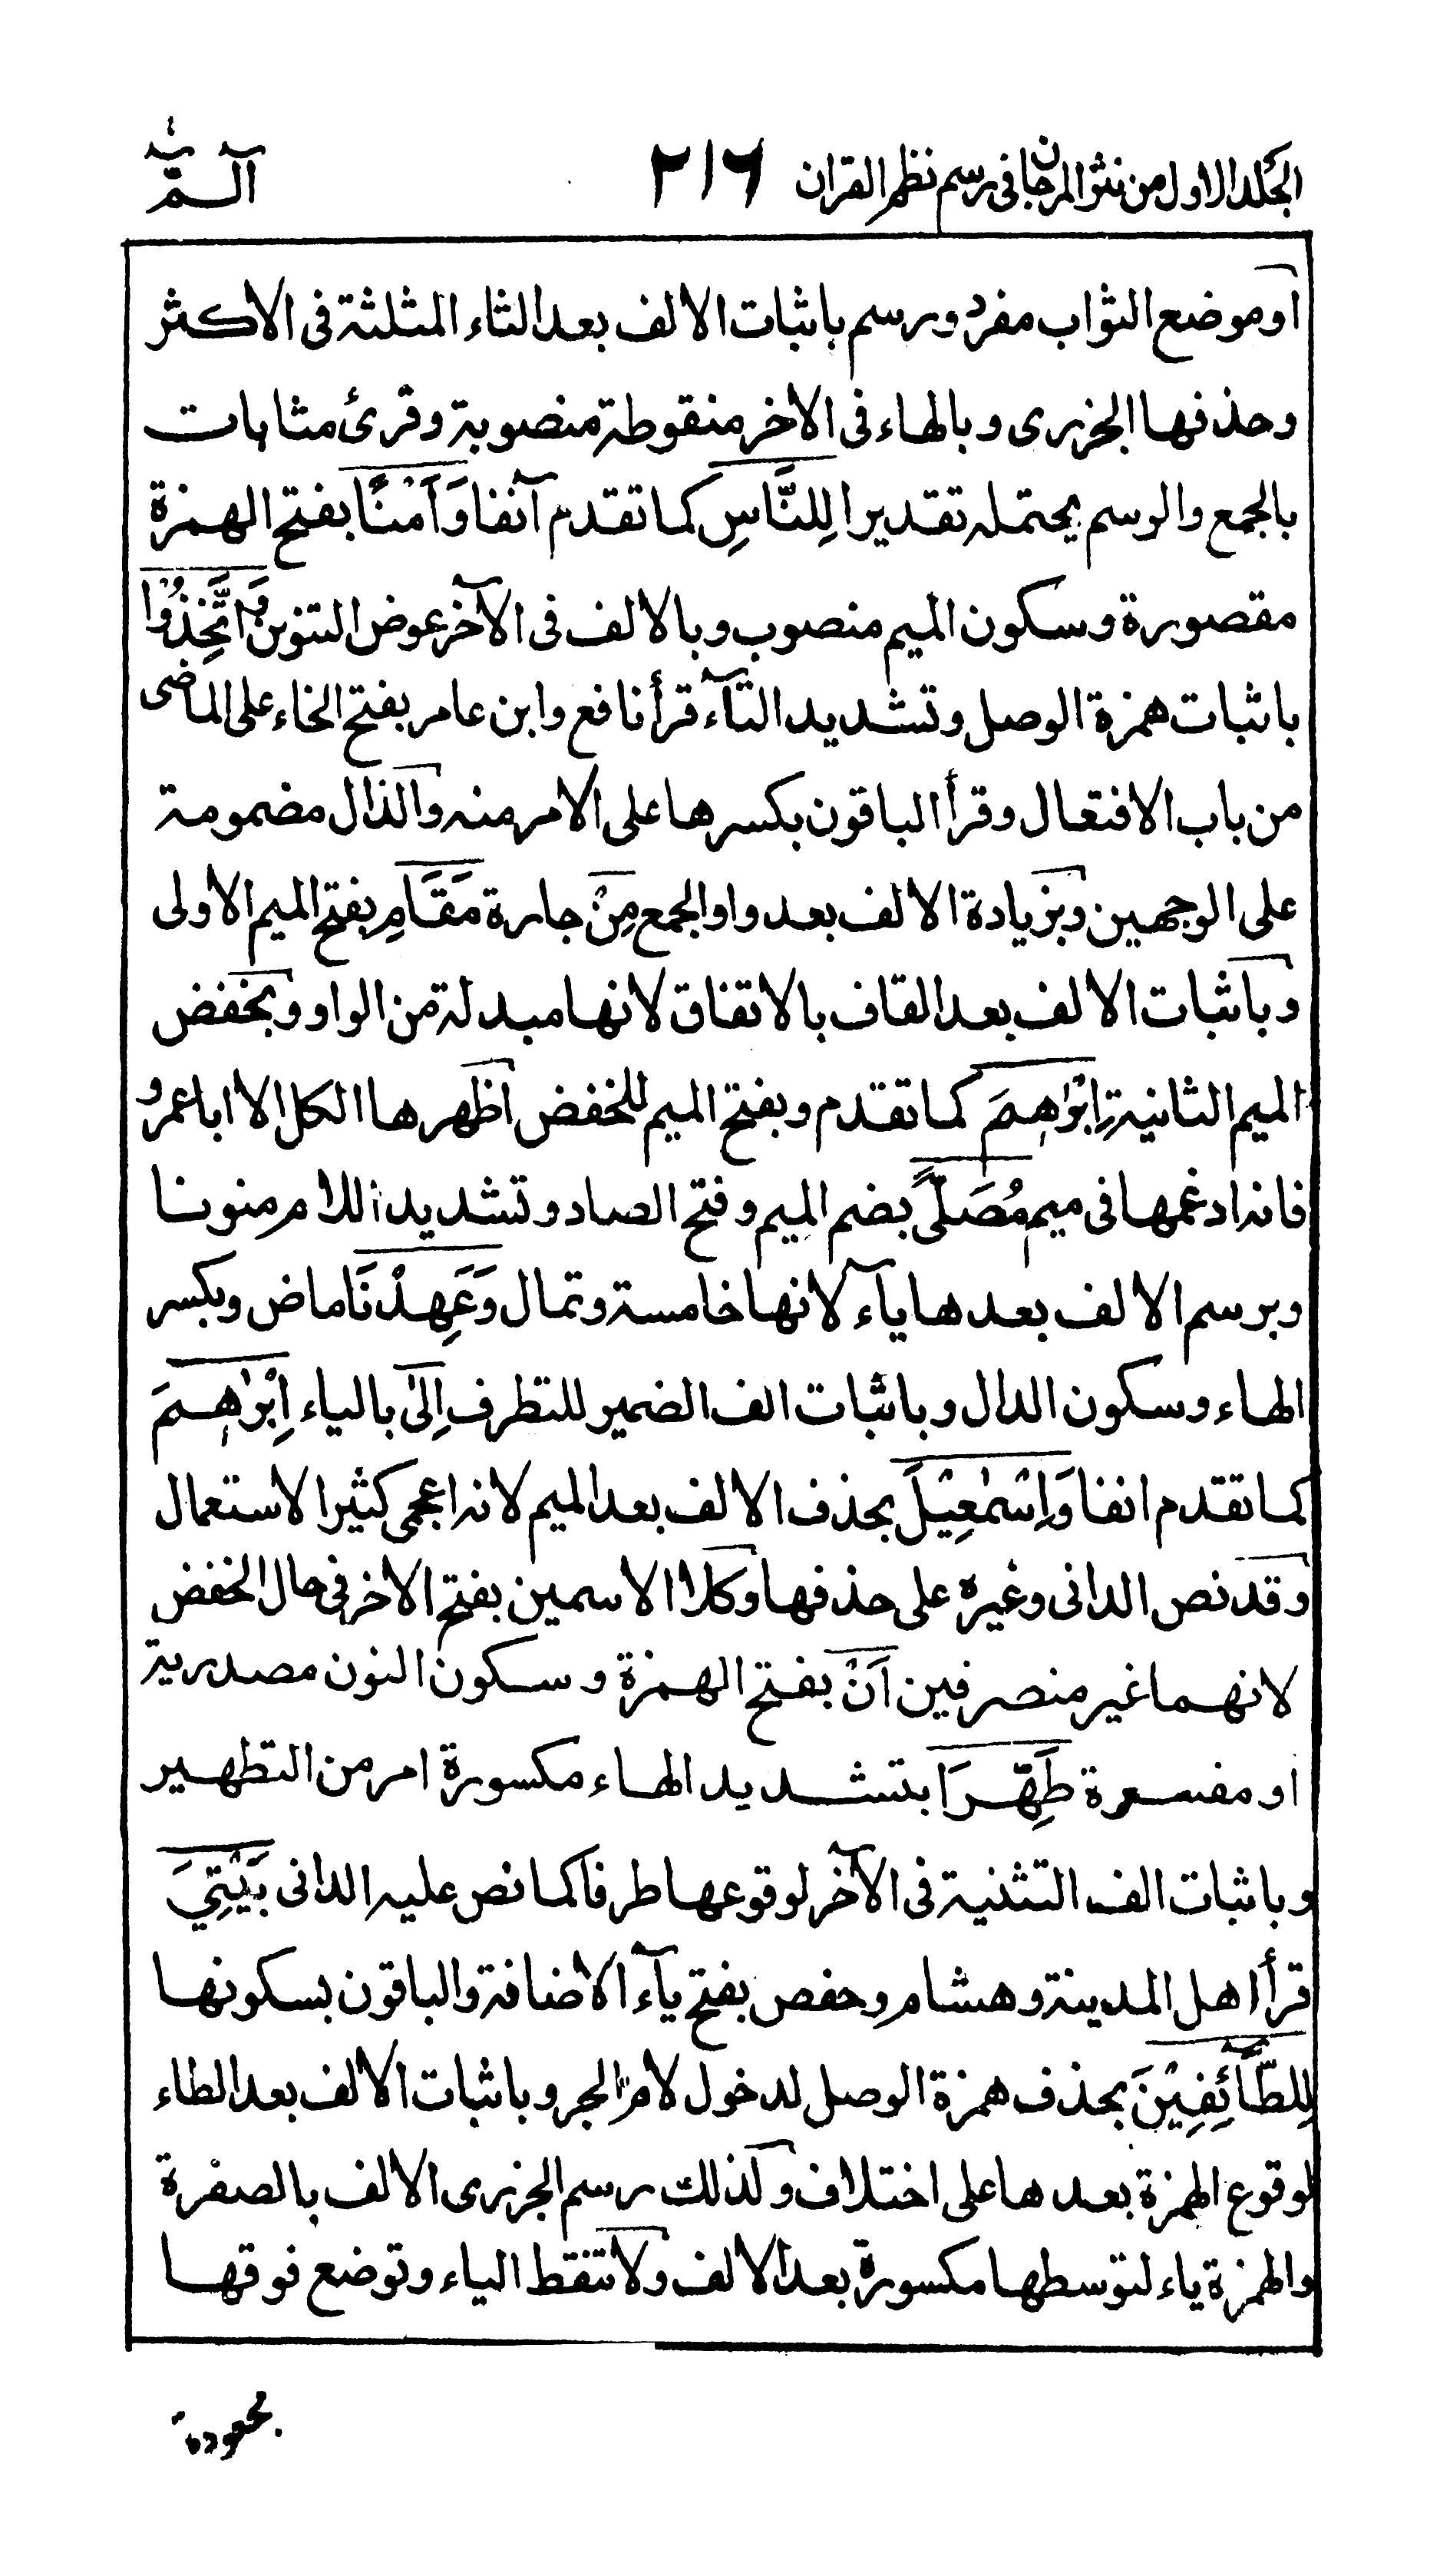 المجلد الاول من نثر المرجان فى رسم نظم القران ٢١٦ آلـمّ
او موضع الثواب مفرد ورسم باثبات الالف بعد الثاء المثلثة فى الاكثر
وحذفها الجزرى وبالهاء فى الاخر منقوطة منصوبة وقرئ مثابات
بالجمع والرسم يحتمله تقديرا لِلنَّاسِ كما تقدم آنفا وَاَمْنًا بفتح الهمزة
مقصورة وسكون الميم منصوب وبالالف فى الآخر عوض التنوين وَاتَّخِذُوْا
باثبات همزة الوصل وتشديد التآء قرأ نافع وابن عامر بفتح الخاء على الماضى
من باب الافتعال وقرأ الباقون بكسرها على الامر منه والذال مضمومة
على الوجهين وبزيادة الالف بعد واو الجمع مِنْ جارة مَقَامِ بفتح الميم الاولى
وباثبات الالف بعد القاف بالاتفاق لانها مبدلة من الواو وبخفض
الميم الثانية اِبْرٰهٖمَ كما تقدم وبفتح الميم للخفض اظهرها الكل الا ابا عمرو
فانه ادغمها فى ميم مُصَلًّى بضم الميم وفتح الصاد وتشديد اللام منونا
وبرسم الالف بعدها يآء لانها خامسة وتمال وَعَهِدْنَا ماض وبكسر
الهاء وسكون الدال وباثبات الف الضمير للتطرف اِلٰى بالياء اِبْرٰهٖمَ
كما تقدم انفا وَاِسْمٰعِيْلَ بحذف الالف بعد الميم لانه اعجمى كثير الاستعمال
وقد نص الدانى وغيره على حذفها وكلا الاسمين بفتح الاخر فى حال الخفض
لانهما غير منصرفين اَنْ بفتح الهمزة وسكون النون مصدرية
او مفسرة طَهِّرَا بتشديد الهاء مكسورة امر من التطهير
وباثبات الف التثنية فى الآخر لوقوعها طرفا كما نص عليه الدانى بَيْتِيَ
قرأ اهل المدينة وهشام وحفص بفتح يآء الاضافة والباقون بسكونها
لِلطَّآئِفِيْنَ بحذف همزة الوصل لدخول لام الجر وباثبات الالف بعد الطاء
لوقوع الهمزة بعدها على اختلاف وكذلك رسم الجزرى الالف بالصفرة
والهمزة ياء لتوسطها مكسورة بعد الالف ولا تنقط الياء وتوضع فوقها